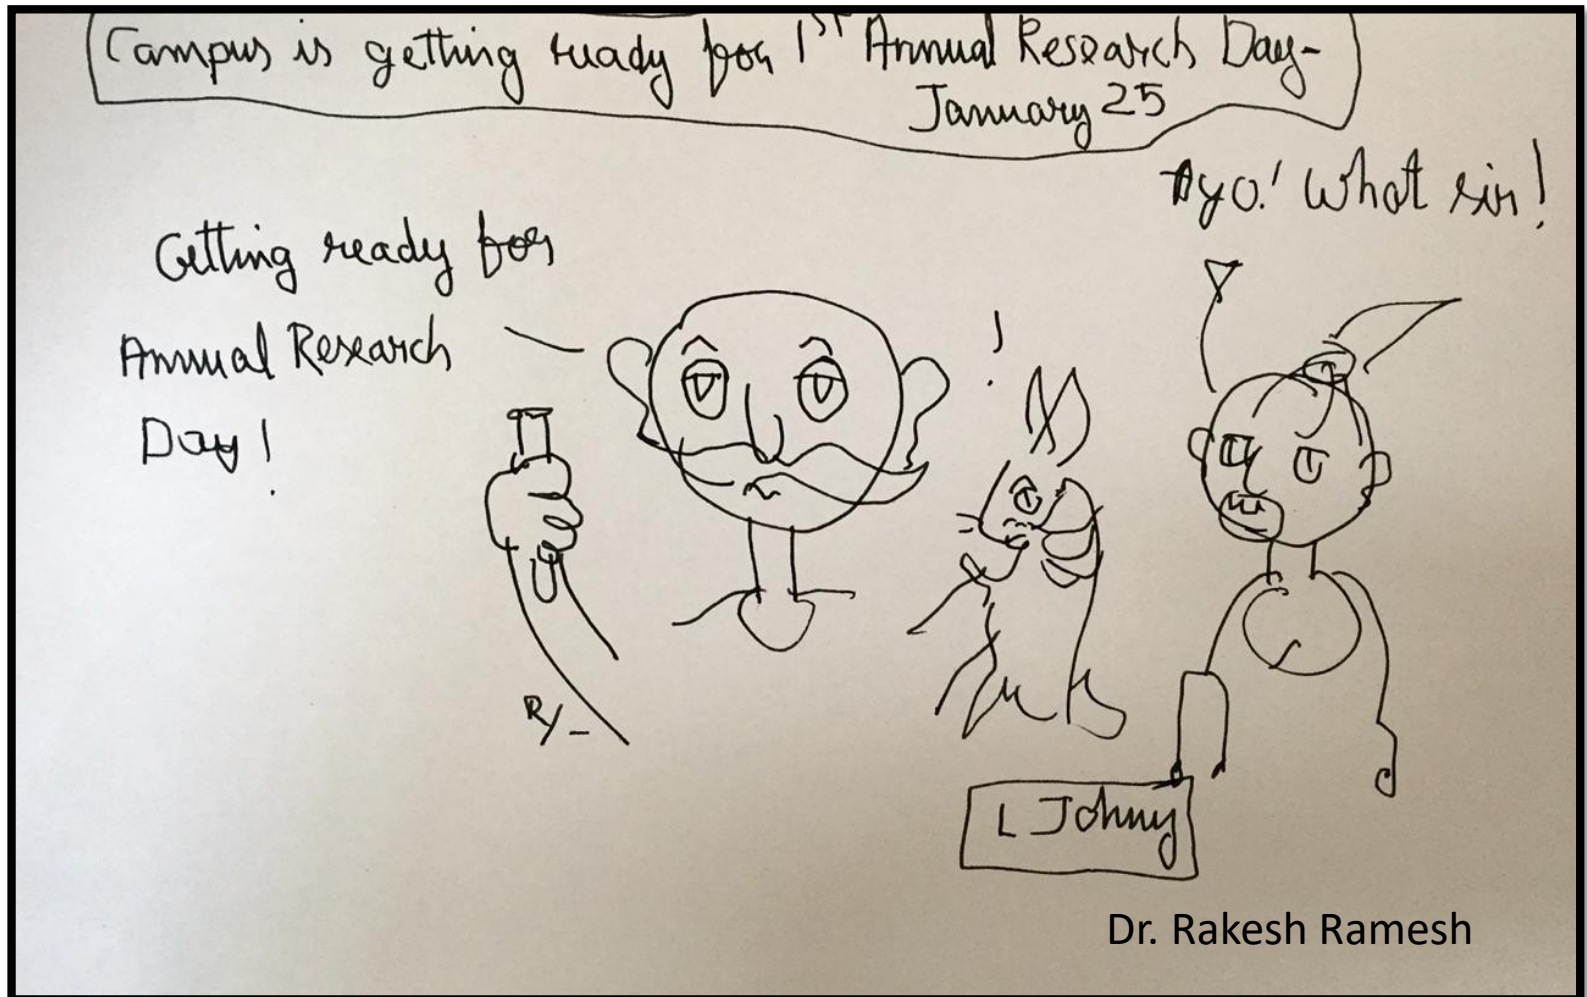 Campus is getting ready for 1ST Annual Research Day-
January 25
Ayo! What sir!
Getting ready for
Annual Research
Day!
!
L Johny
Dr. Rakesh Ramesh